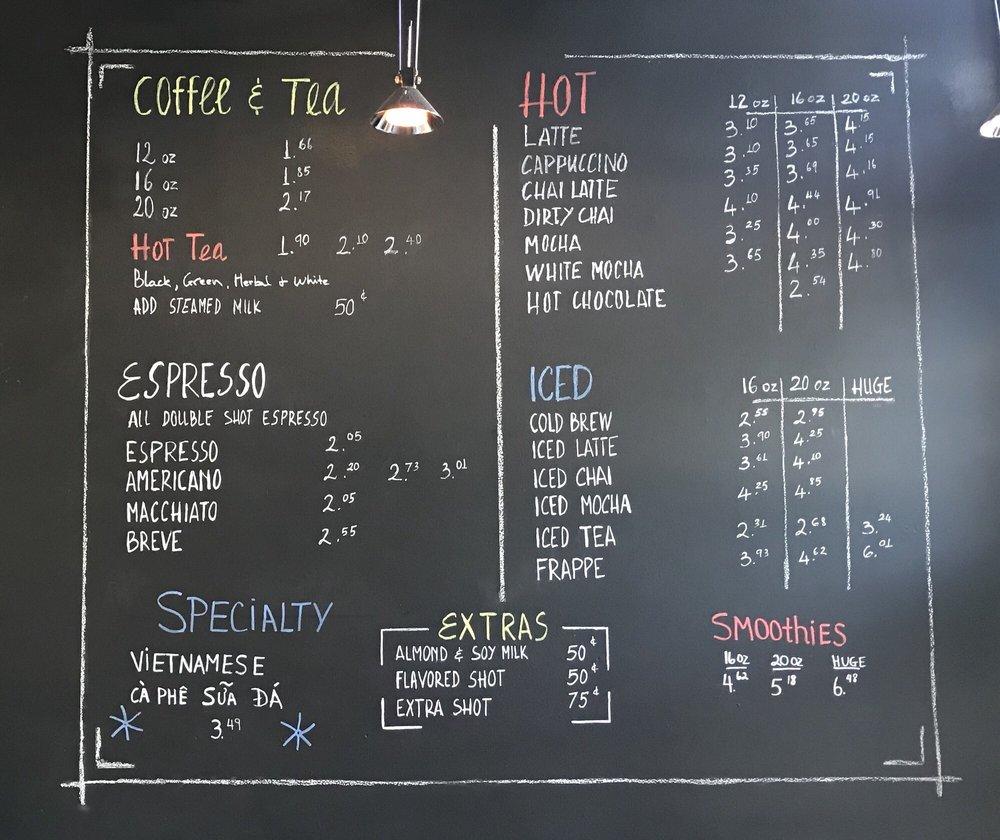 COFFEE & TEA
12 oz 1.66
16 oz 1.85
20 oz 2.17
HOT TEA 1.90 2.10 2.40
Black, Green, Herbal & White
ADD STEAMED MILK 50¢
ESPRESSO
ALL DOUBLE SHOT ESPRESSO
ESPRESSO 2.05
AMERICANO 2.20 2.73 3.01
MACCHIATO 2.05
BREVE 2.55
HOT 12 oz 16 oz 20 oz
LATTE 3.10 3.65 4.15
CAPPUCCINO 3.10 3.65 4.15
CHAI LATTE 3.35 3.69 4.16
DIRTY CHAI 4.10 4.44 4.91
MOCHA 3.25 4.00 4.30
WHITE MOCHA 3.65 4.35 4.80
HOT CHOCOLATE 2.54
ICED 16 oz 20 oz HUGE
COLD BREW 2.55 2.95
ICED LATTE 3.90 4.25
ICED CHAI 3.61 4.10
ICED MOCHA 4.25 4.85
ICED TEA 2.31 2.68 3.24
FRAPPE 3.93 4.62 6.01
SPECIALTY
VIETNAMESE
CÀ PHÊ SỮA ĐÁ
3.49
EXTRAS
ALMOND & SOY MILK 50¢
FLAVORED SHOT 50¢
EXTRA SHOT 75¢
SMOOTHIES
16oz 20oz HUGE
4.62 5.18 6.98